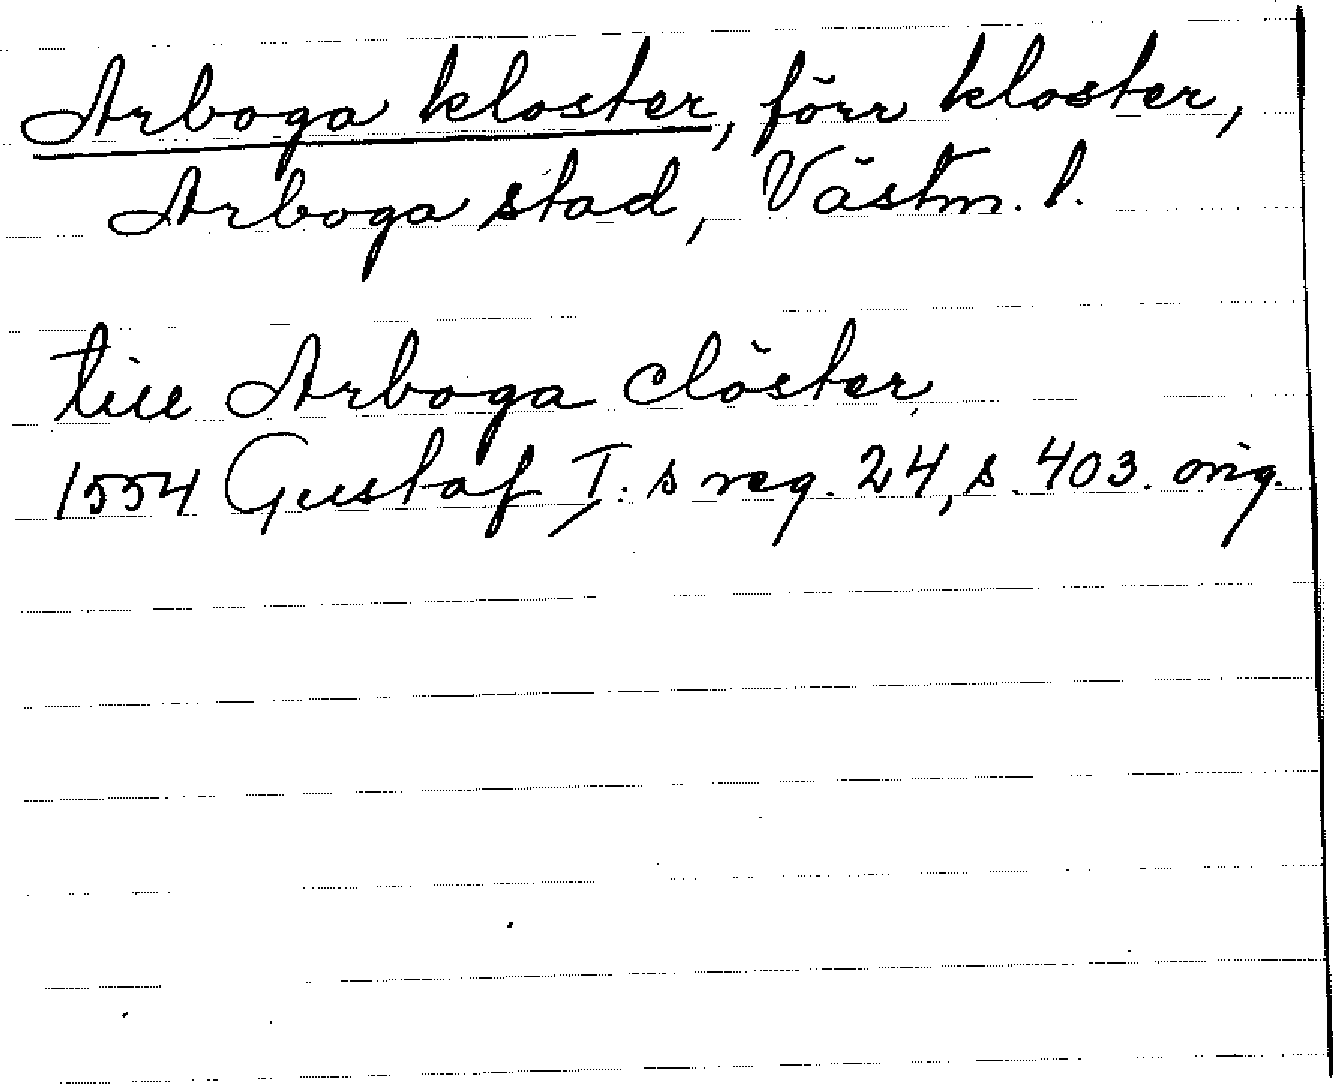 Arboga kloster, förr kloster,
Arboga stad, Västm. l.
till Arboga clöster
1554 Gustaf I:s reg. 24, s. 403. orig.